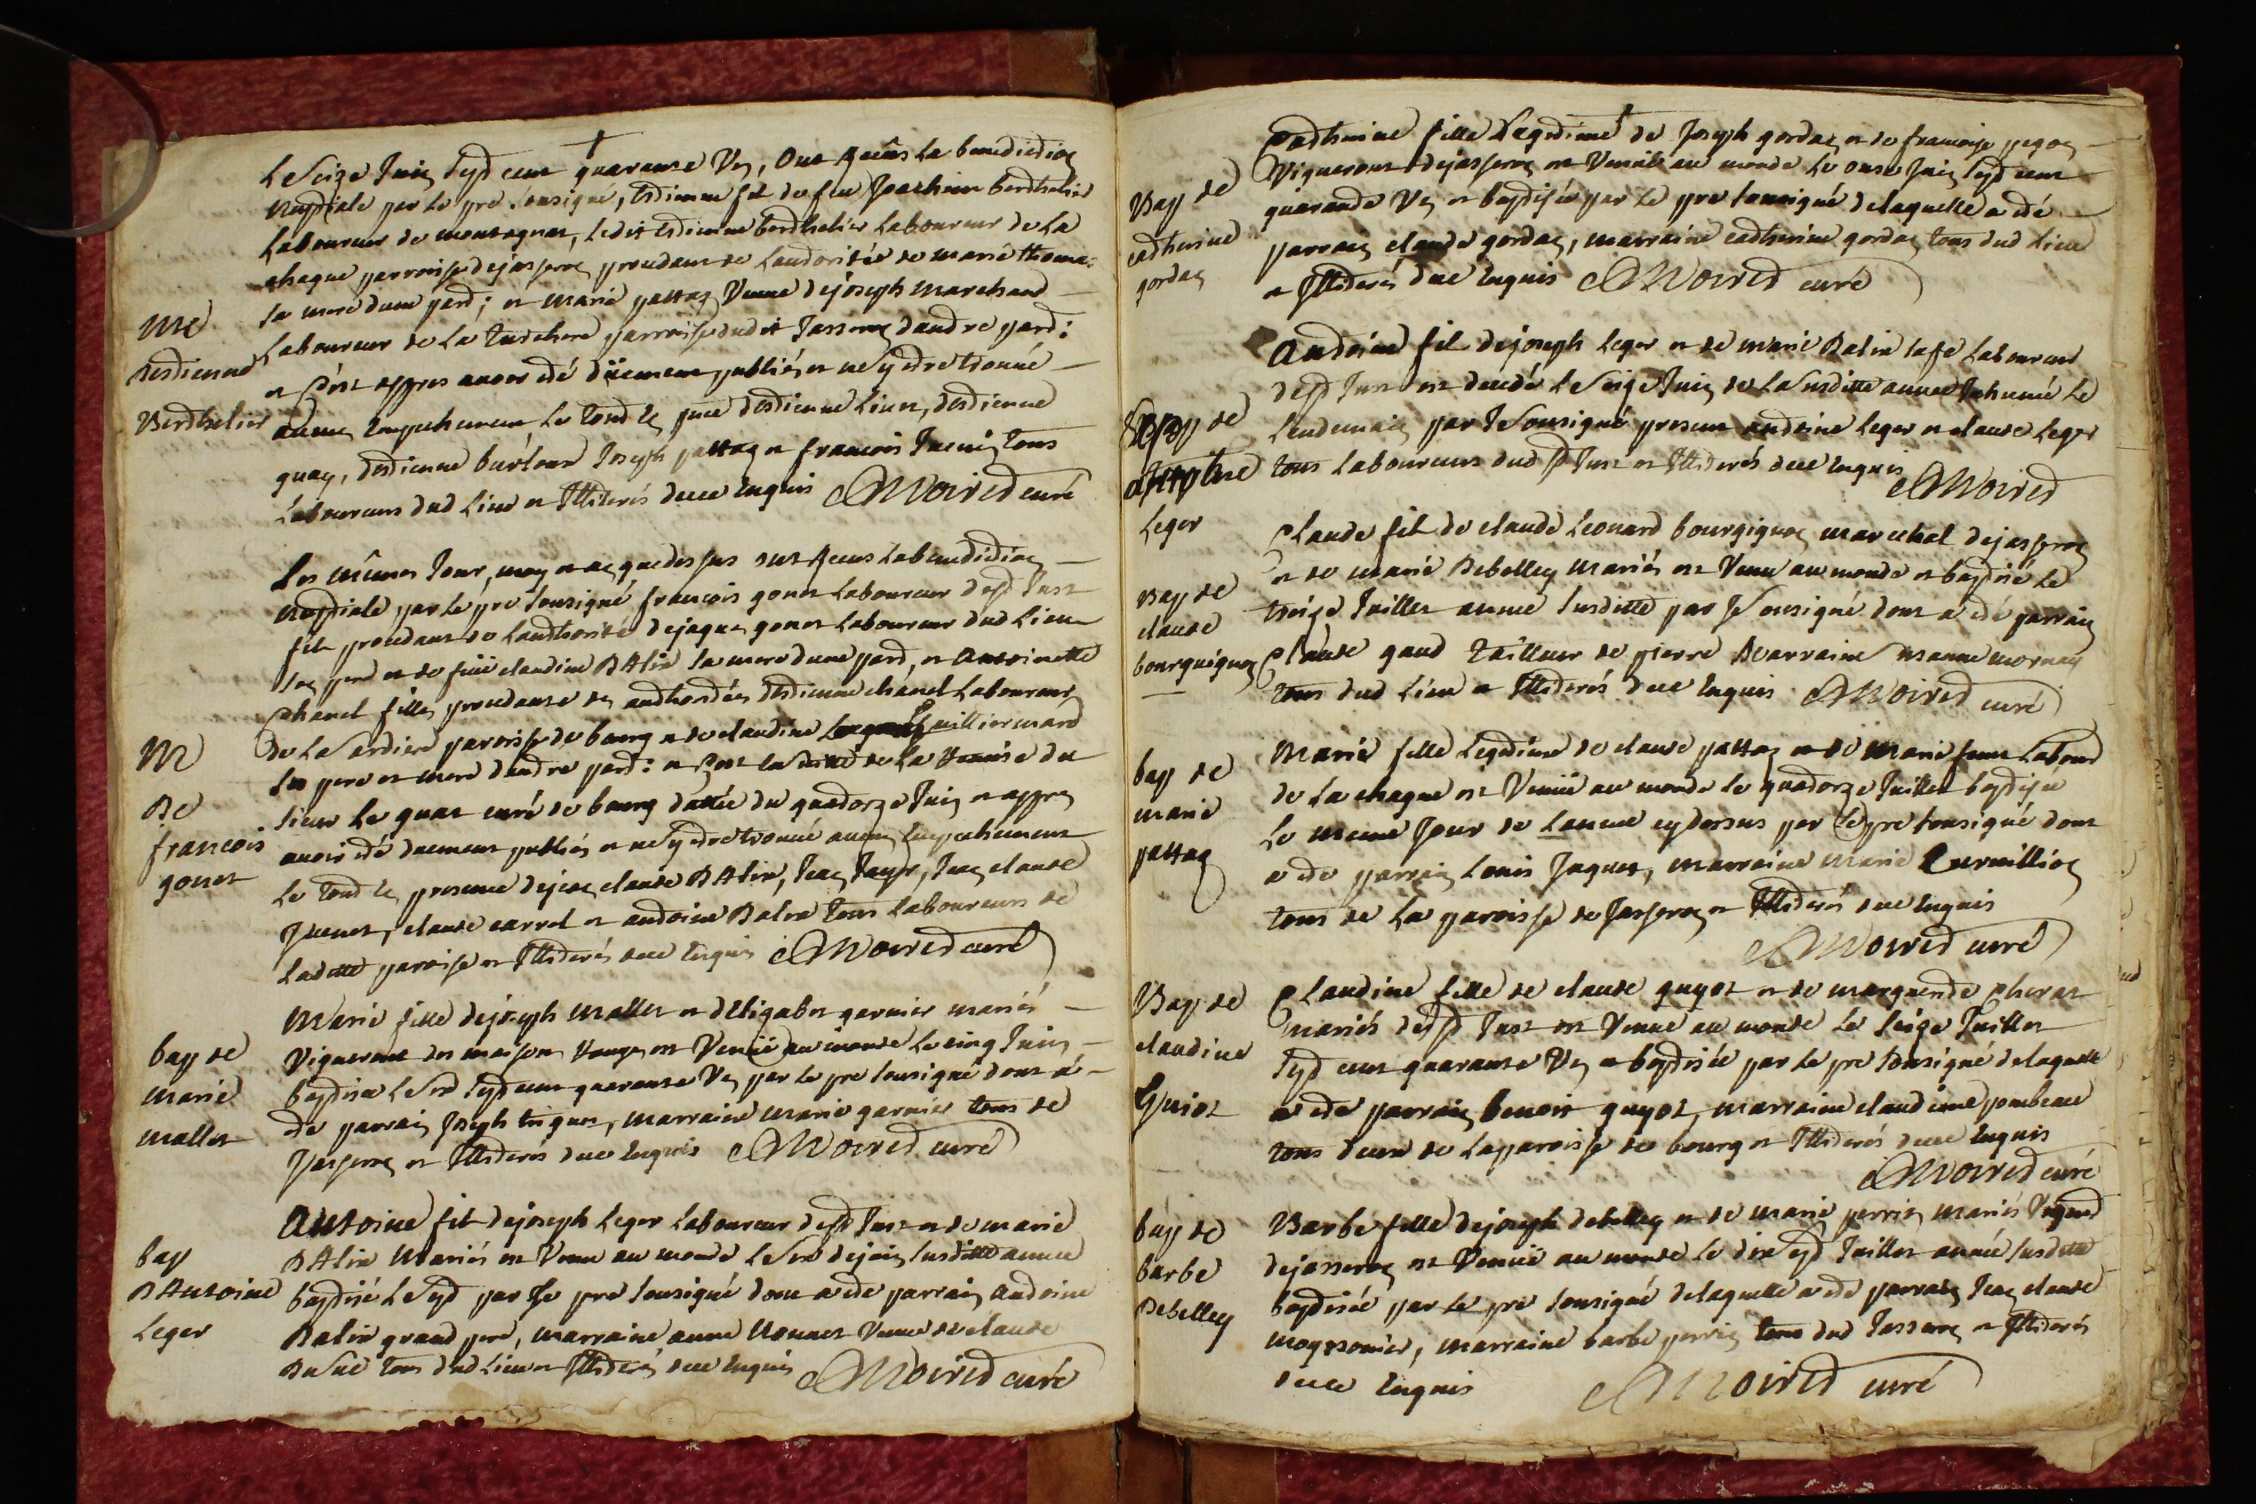 Le seize Juin sept cent quarante Un, Ont Recûs La benediction
nuptiale par Le pre sousigné, Estienne fil de feu Joachim berthelier
Laboureur de montagnat, Ledit estienne berthelier Laboureur de La
chagne parroisse dejasseron procedant de Lauthorité de marie thoma
sa mere dune part; et marie pattaz Veuve dejoseph marchand
Laboureur de La parroisse dudit Jasseron dautre part:
et C'est appres avoir eté düement publiés et ne sy etre trouvé
aucun Empechement Le tout En pnce destienne Linet, destienne
guay, destienne Joseph pattaz et francois tous
Laboureurs dud Lieu et Illiterés dece Enquis Moiret curé
Mre
destienne
Berthelier
Les mêmes Jour, moy et an quedessus ont Recus Labenediction
nuptiale par Le pre sousigné francois gonet Laboureur dest Just
fil procedant de Lauthorité dejaque gonet Laboureur dud Lieu
son pere et de feüe claudine BAlin sa mere dune part, et Antoinette
Chanel fille procedante des authorités destienne chanel Laboureur
de La parroisse de bourg et de claudine Cuilliermard
ses pere et mere dautre part: et C'est de La Remise du
sieur Le guat curé de bourg dattée du quatorze Juin et appres
avoir eté duement publiés et ne sy etre trouvé aucun Empechement
Le tout En presence dejean claude BAlin, Jean Jayr, Jean claude
Juenet, claude carrel et antoine Balin tous Laboureurs de
Ladite paroisse et Illiterés dece Enquis Moiret curé
M
De
francois
gonet
Marie fille dejoseph mallet et dElizabet garnier mariés
Vignerons des maisons Rouges est Venuë au monde Le cinq Juin
baptisée Le six sept cent quarante Un par Le pre sousigné dont a
ete parrain Joseph triquet, marraine marie garnier tous de
Jasseron et Illiterés dece Enquis Moiret curé
bap de
marie
mallet
Antoine fil dejoseph Leger Laboureur dest Just et de marie
BAlin Mariés est Venu au monde Le six dejuin susditte année
baptisé Le sept par Le pre sousigné dont a ete parrain Antoine
Balin grand pere, marraine anne Monnet Veuve de claude
tous dud Lieu et Illiterés dece Enquis Moiret curé
bap
DAntoine
Leger
Catherine fille Legitime de Joseph gordaz et de francoise
Vignerons dejasseron est Venuë au monde Le onze Juin sept cent
quarante Un et baptisée par Le pre sousigné delaquelle a eté
parrain claude gordaz, marraine catherine gordaz tous dud Lieu
et Illiterés dece Enquis Moiret curé
Bap de
catherine
gordaz
Antoine fil dejoseph Leger et de marie Balin sa fe Laboureur
dest Just est decedé Le seize Juin de La susditte année Inhumé Le
Lendemain par Le sousigné present antoine Leger et claude Leger
tous Laboureurs dud st Just et Illiterés dece Enquis Moiret
de
Leger
Claude fil de claude Leonard bourgignon marechal dejasseron
et de marie Debelley Mariés est Venu au monde et baptisé Le
treize Juillet année susditte par Le sousigné dont a eté parrain
Claude gaud tailleur de pierre marraine anne mornay
tous dud Lieu et Illiterés dece Enquis Moiret curé
Bap de
claude
bourguignon
Marie fille Legitime de claude pattaz et de Marie Labour
de La chagne est Venuë au monde Le quatorze Juillet baptisée
Le meme Jour de Lannée cydessus par Le pre sousigné dont
a ete parrain Louis Jaquet, marraine Marie Curveillion
tous de La paroisse de Jasseron et Illiterés dece Enquis
Moiret curé
bap de
marie
pattaz
Claudine fille de claude guyot et de marguerite Cherat
mariés dest Just est Venuë au monde Le seize Juillet
sept cent quarante Un et baptisée par Le pre sousigné delaquelle
a ete parrain benoit guyot, marraine claudine pombeau
tous deux de La paroisse de bourg et Illiterés dece Enquis
Moiret curé
Bap de
claudine
Guiot
Barbe fille dejoseph debelley et de marie perrin mariés
dejasseron est Venuë au monde Le dix sept Juillet année susditte
baptisée par Le pre sousigné delaquelle a ete parrain Jean claude
moyssonier, marraine barbe perrin tous dud Jasseron et Illiterés
dece Enquis Moiret curé
bap de
barbe
Debelley